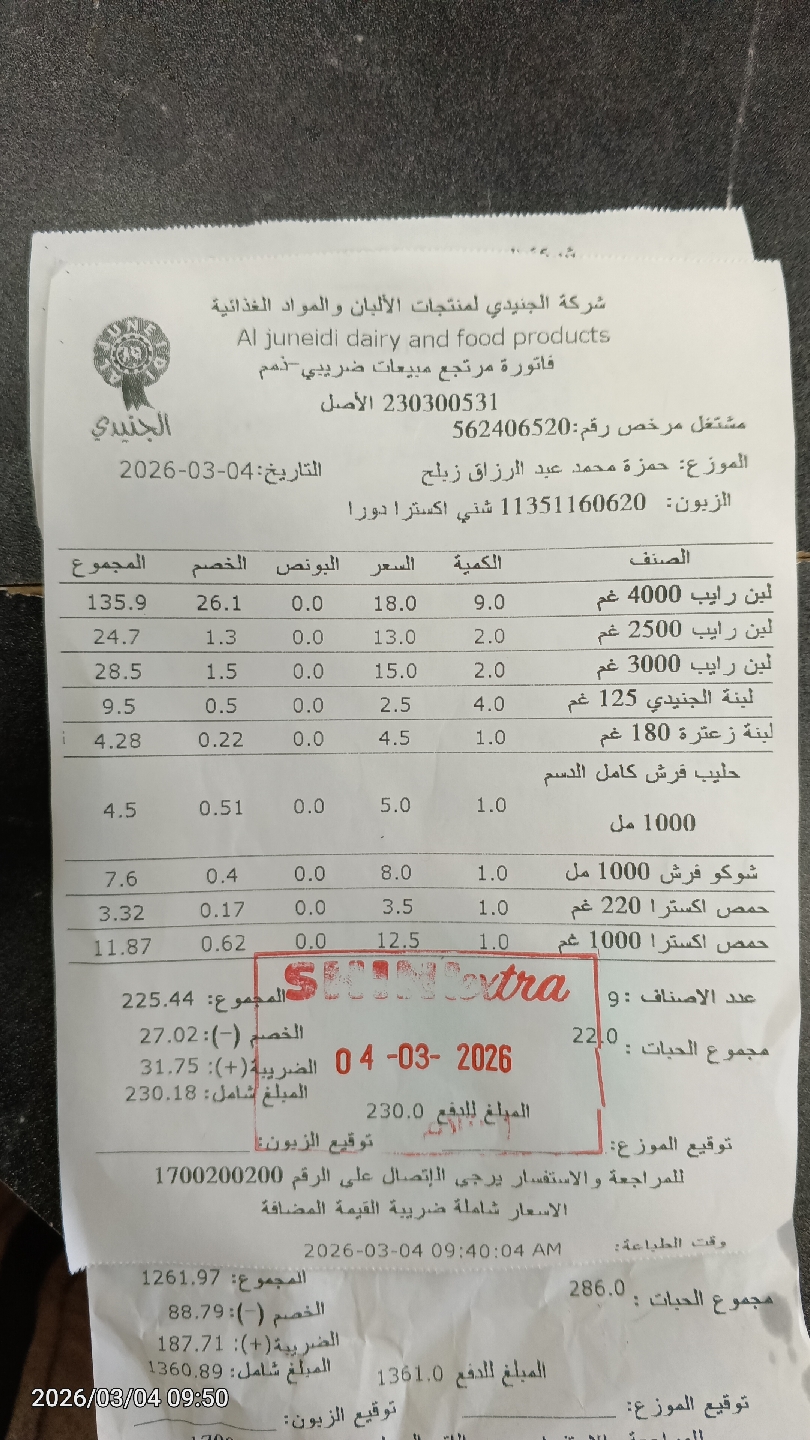 شركة الجنيدي لمنتجات الألبان والمواد الغذائية
Al juneidi dairy and food products
فاتورة مرتجع مبيعات ضريبي-ذمم
230300531 الأصل
الجنيدي
مشتغل مرخص رقم:562406520
الموزع: حمزة محمد عبد الرزاق زبلح التاريخ:2026-03-04
الزبون: 11351160620 شني اكسترا دورا
الصنف الكمية السعر البونص الخصم المجموع
لبن رايب 4000 غم 9.0 18.0 0.0 26.1 135.9
لبن رايب 2500 غم 2.0 13.0 0.0 1.3 24.7
لبن رايب 3000 غم 2.0 15.0 0.0 1.5 28.5
لبنة الجنيدي 125 غم 4.0 2.5 0.0 0.5 9.5
لبنة زعترة 180 غم 1.0 4.5 0.0 0.22 4.28
حليب فرش كامل الدسم
1000 مل 1.0 5.0 0.0 0.51 4.5
شوكو فرش 1000 مل 1.0 8.0 0.0 0.4 7.6
حمص اكسترا 220 غم 1.0 3.5 0.0 0.17 3.32
حمص اكسترا 1000 غم 1.0 12.5 0.0 0.62 11.87
عدد الاصناف : 9 المجموع: 225.44
SHINI extra
مجموع الحبات : 22.0 الخصم (-): 27.02
04-03-2026
الضريبة(+): 31.75
المبلغ شامل: 230.18
المبلغ للدفع 230.0
توقيع الموزع: توقيع الزبون:
للمراجعة والاستفسار يرجى الإتصال على الرقم 1700200200
الاسعار شاملة ضريبة القيمة المضافة
وقت الطباعة: 2026-03-04 09:40:04 AM
مجموع الحبات : 286.0 المجموع: 1261.97
الخصم (-): 88.79
الضريبة(+): 187.71
المبلغ شامل: 1360.89
المبلغ للدفع 1361.0
توقيع الموزع: توقيع الزبون:
2026/03/04 09:50